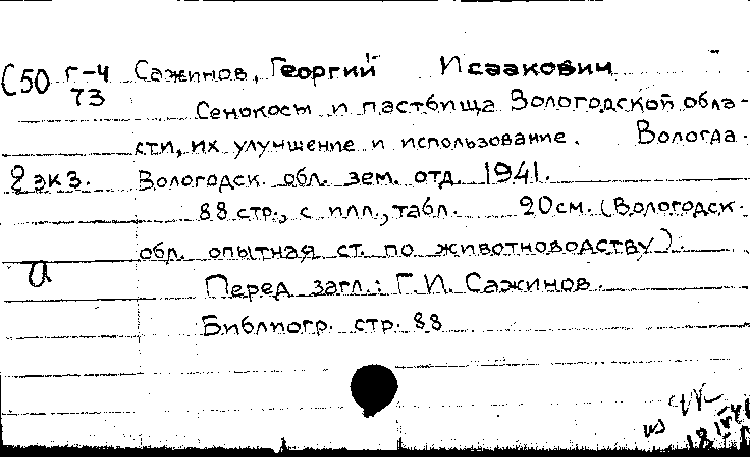 С50 Г-4 Сажинов, Георгий Исаакович
73
Сенокосы и пастбища Вологодской обла-
сти, их улучшение и использование. Вологда.
2 экз. Вологодск. обл. зем. отд. 1941.
88 стр., с илл., табл. 20 см. (Вологодск.
обл. опытная ст. по животноводству).
а
Перед загл.: Г.И. Сажинов.
Библиогр. стр. 88
18 IV